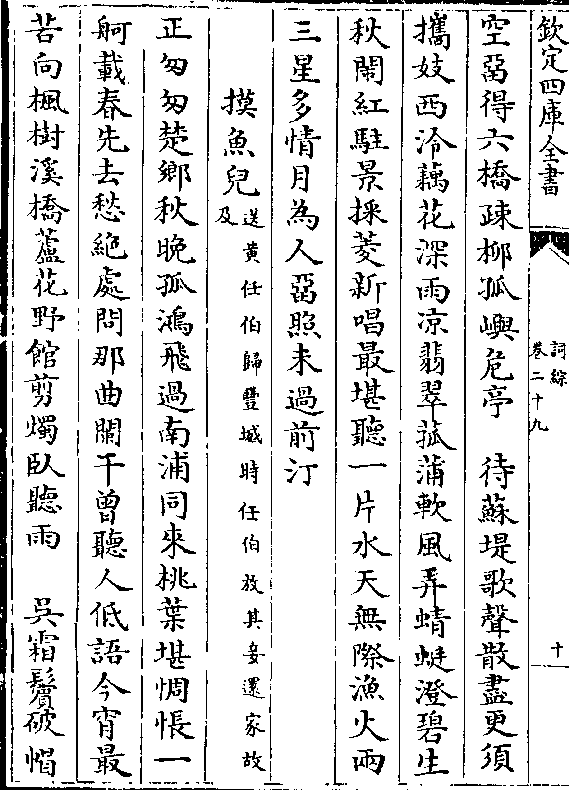 欽定四庫全書
詞綜
卷二十九
十
空畱得六橋疎柳孤嶼危亭　待蘇堤歌聲散盡更須
攜妓西泠藕花深雨凉翡翠菰蒲軟風弄蜻蜓澄碧生
秋鬧紅駐景採菱新唱最堪聽一片水天無際漁火兩
三星多情月為人畱照未過前汀
摸魚兒
送黄任伯歸豐城時任伯放其妾還家故
及
正匆匆楚鄉秋晚孤鴻飛過南浦同來桃葉堪惆悵一
舸載春先去愁絶處問那曲闌干曾聽人低語今宵最
苦向楓樹溪橋蘆花野館剪燭卧聽雨　吳霜鬢破帽